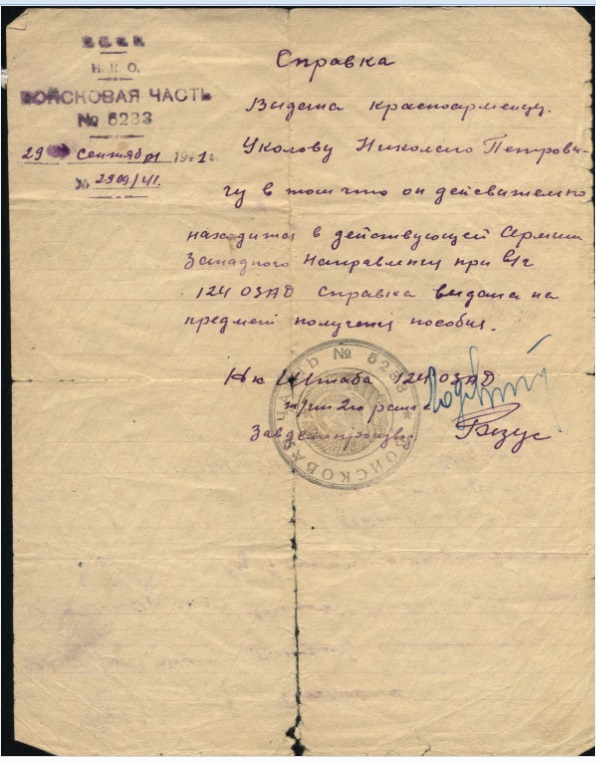 СССР
Н. К. О.
ВОЙСКОВАЯ ЧАСТЬ
№ 5233
29 сентября 1941 г.
№ 2909/41.
Справка
Выдана красноармейцу.
Уколову Николаю Петрови-
чу в том что он действительно
находится в действующей Армии
Западного Направления при в/ч
124 ОЗАД справка выдана на
предмет получения пособия.
Н-к Штаба 124 ОЗАД
Завделопроизвод.
ВОЙСКОВАЯ ЧАСТЬ № 5233